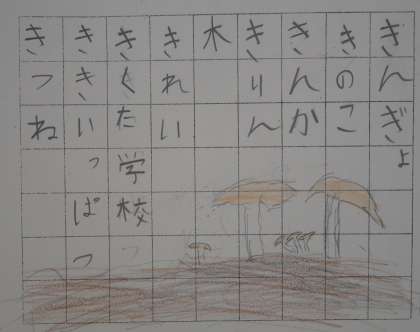 きんぎょ
きのこ
きんか
きりん
木
きれい
きくた学校
ききいっぱつ
きつね